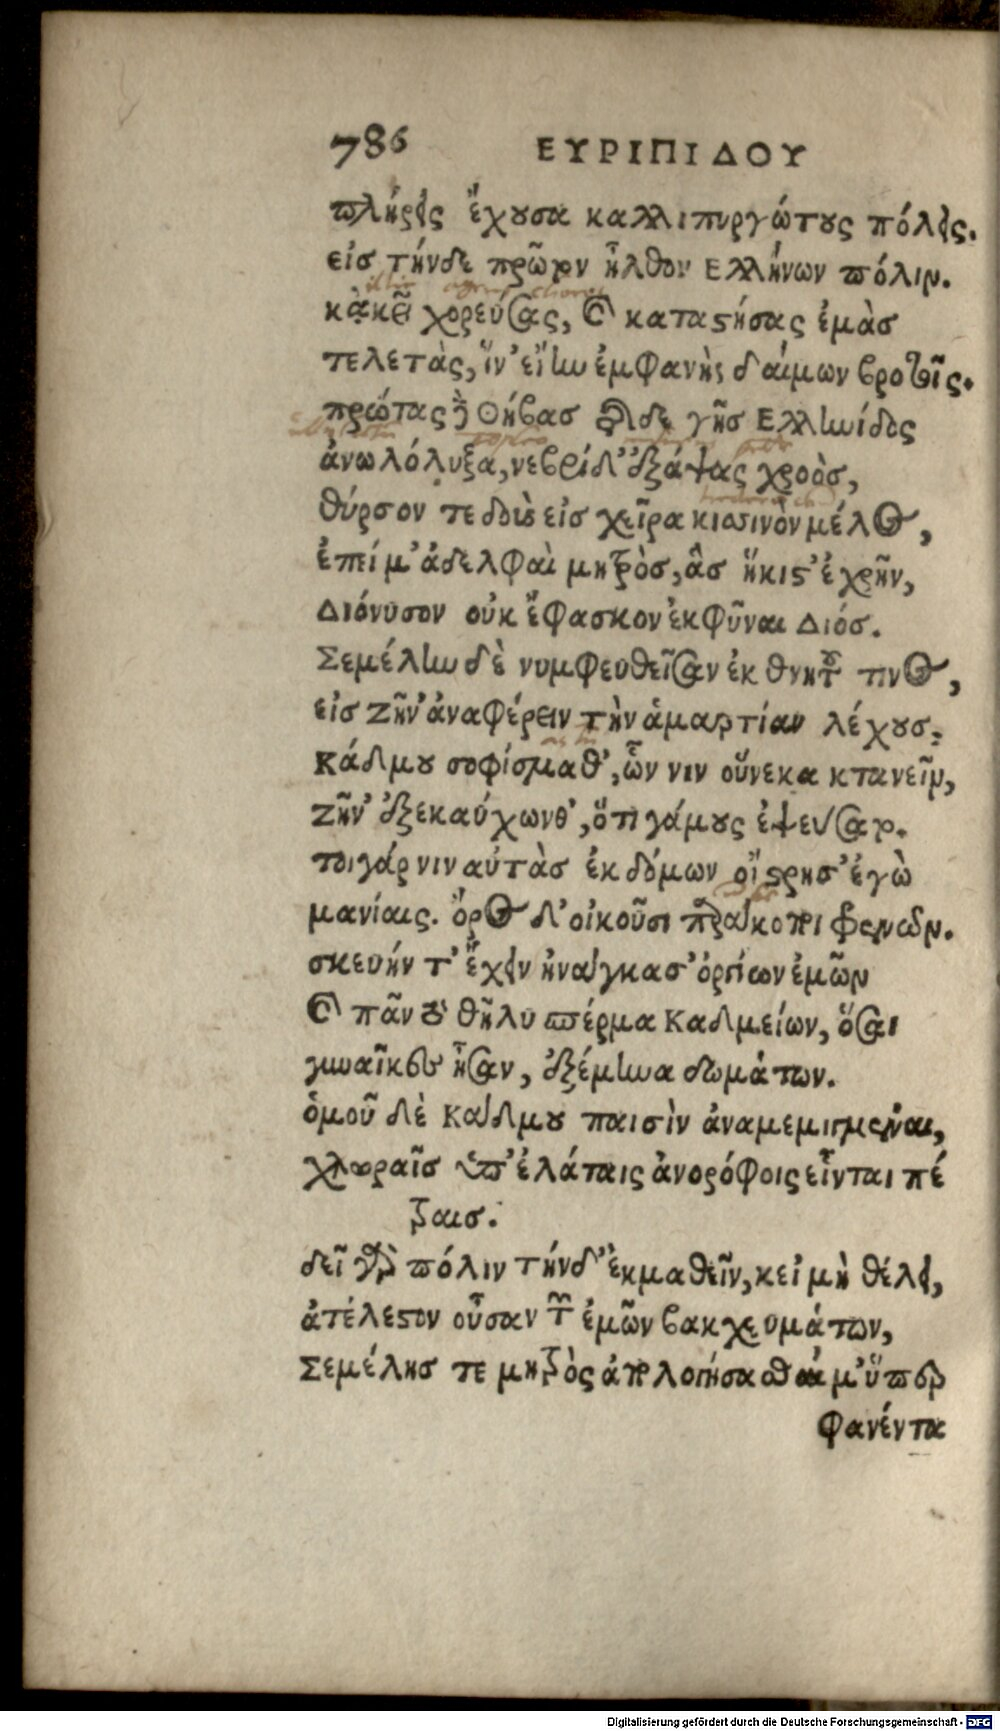 786 ΕΥΡΙΠΙΔΟΥ
πλήρεις ἔχουσα καλλιπυργώτους πόλεις.
εἰς τήνδε πρῶτον ἦλθον Ελλήνων πόλιν.
κἀκεῖ χορεύσας, καὶ καταστήσας ἐμὰς
τελετὰς, ἵν' εἴην ἐμφανὴς δαίμων βροτοῖς.
πρώτας δὲ Θήβας τάσδε γῆς Ελλωίδος
ἀνωλόλυξα, νεβρίδ' ἐξάψας χροὸς,
θύρσον τε δοὺς εἰς χεῖρα κισσινὸν μέλος,
ἐπεί μ' ἀδελφαὶ μητρὸς, ἃς ἥκιστ' ἐχρῆν,
Διόνυσον οὐκ ἔφασκον ἐκφῦναι Διός.
Σεμέλην δὲ νυμφευθεῖσαν ἐκ θνητοῦ τινος,
εἰς Ζῆν' ἀναφέρειν τὴν ἁμαρτίαν λέχους.
Κάδμου σοφίσμαθ', ὧν νιν οὕνεκα κτανεῖν,
Ζῆν' ἐξεκαύχωνθ', ὅτι γάμους ἐψευσατο.
τοιγάρ νιν αὐτὰς ἐκ δόμων οἴστρησ' ἐγὼ
μανίαις. ὄρος δ' οἰκοῦσι παράκοποι φρενῶν.
σκευήν τ' ἔχειν ἠνάγκασ' ὀργίων ἐμῶν
καὶ πᾶν τὸ θῆλυ σπέρμα Καδμείων, ὅσαι
γυναῖκες ἦσαν, ἐξέμηνα δωμάτων.
ὁμοῦ δὲ Κάδμου παισὶν ἀναμεμιγμέναι,
χλωραῖς ὑπ' ἐλάταις ἀνορόφοις εἷνται πέ
τραις.
δεῖ γὰρ πόλιν τήνδ' ἐκμαθεῖν, κεἰ μὴ θέλει,
ἀτέλεστον οὖσαν τῶν ἐμῶν βακχευμάτων,
Σεμέλης τε μητρὸς ἀπολογήσασθαι μ' ὕπερ
φανέντα
Digitalisierung gefördert durch die Deutsche Forschungsgemeinschaft - DFG